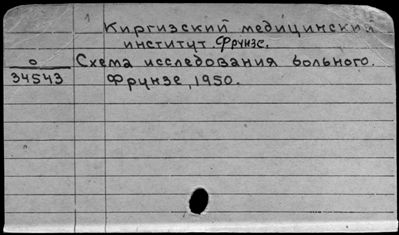 1 Киргизский медицинский
институт. Фрунзе.
о Схема исследования больного.
34543 Фрунзе, 1950.